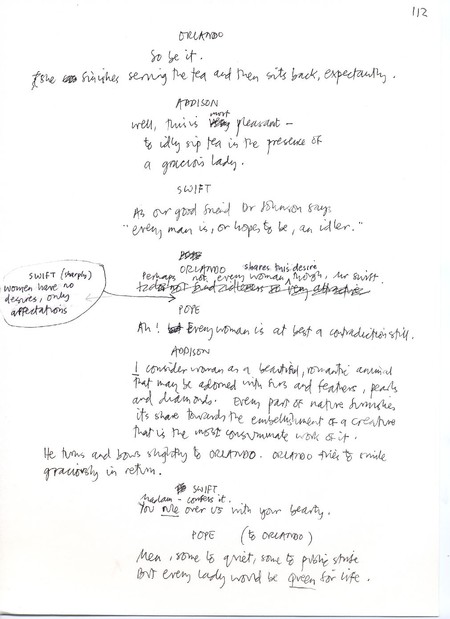 112
ORLANDO
So be it.
She finishes serving the tea and then sits back, expectantly.
ADDISON
most
Well, this is very pleasant –
to idly sip tea in the presence of
a gracious lady.
SWIFT
As our good friend Dr Johnson says
"every man is, or hopes to be, an idler."
ORLANDO
shares this desire
Perhaps not every woman, though, Mr Swift.
SWIFT (sharply)
women have no
desires, only
affectations
POPE
Ah! but Every woman is at best a contradiction still.
ADDISON
I consider woman as a beautiful, romantic animal
that may be adorned with furs and feathers, pearls
and diamonds. Every part of nature furnishes
its share towards the embellishment of a creature
that is the most consummate work of it.
He turns and bows slightly to ORLANDO. ORLANDO tries to smile
graciously in return.
SWIFT
Madam – confess it.
You rule over us with your beauty.
POPE (to ORLANDO)
Men, some to quiet, some to public strife
But every lady would be queen for life.